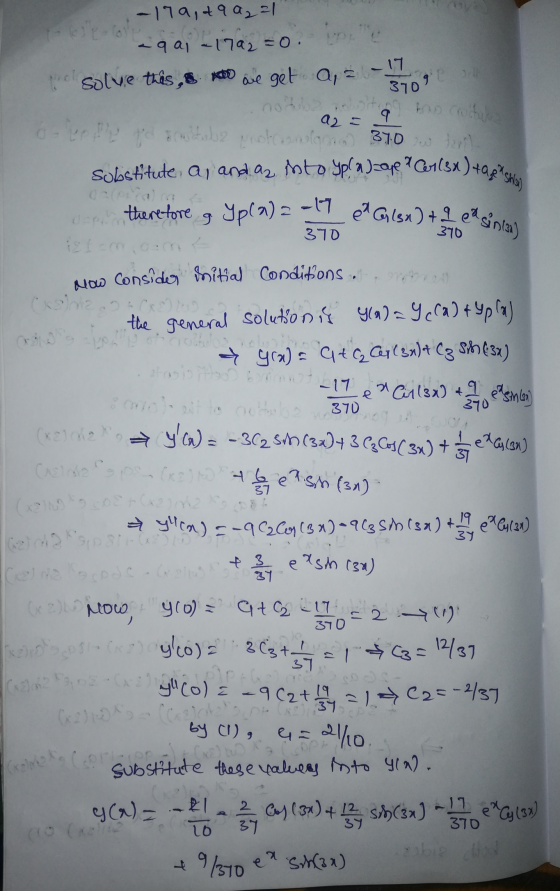 -17a₁ + 9a₂ = 1
-9a₁ - 17a₂ = 0.
Solve this, we get a₁ = -17/370,
a₂ = 9/370
Substitute a₁ and a₂ into yp(x) = a₁e^x Cos(3x) + a₂e^x Sin(3x)
therefore, yp(x) = -17/370 e^x Cos(3x) + 9/370 e^x Sin(3x)
Now Consider initial Conditions.
the general solution is y(x) = yc(x) + yp(x)
⇒ y(x) = C₁ + C₂ Cos(3x) + C₃ Sin(3x)
-17/370 e^x Cos(3x) + 9/370 e^x Sin(3x)
⇒ y'(x) = -3C₂ Sin(3x) + 3C₃ Cos(3x) + 1/37 e^x Cos(3x)
+ 6/37 e^x Sin(3x)
⇒ y''(x) = -9C₂ Cos(3x) - 9C₃ Sin(3x) + 19/37 e^x Cos(3x)
+ 3/37 e^x Sin(3x)
Now, y(0) = C₁ + C₂ - 17/370 = 2 → (1)
y'(0) = 3C₃ + 1/37 = 1 ⇒ C₃ = 12/37
y''(0) = -9C₂ + 19/37 = 1 ⇒ C₂ = -2/37
by (1), C₁ = 21/10
Substitute these values into y(x).
y(x) = -21/10 - 2/37 Cos(3x) + 12/37 Sin(3x) - 17/370 e^x Cos(3x)
+ 9/370 e^x Sin(3x)